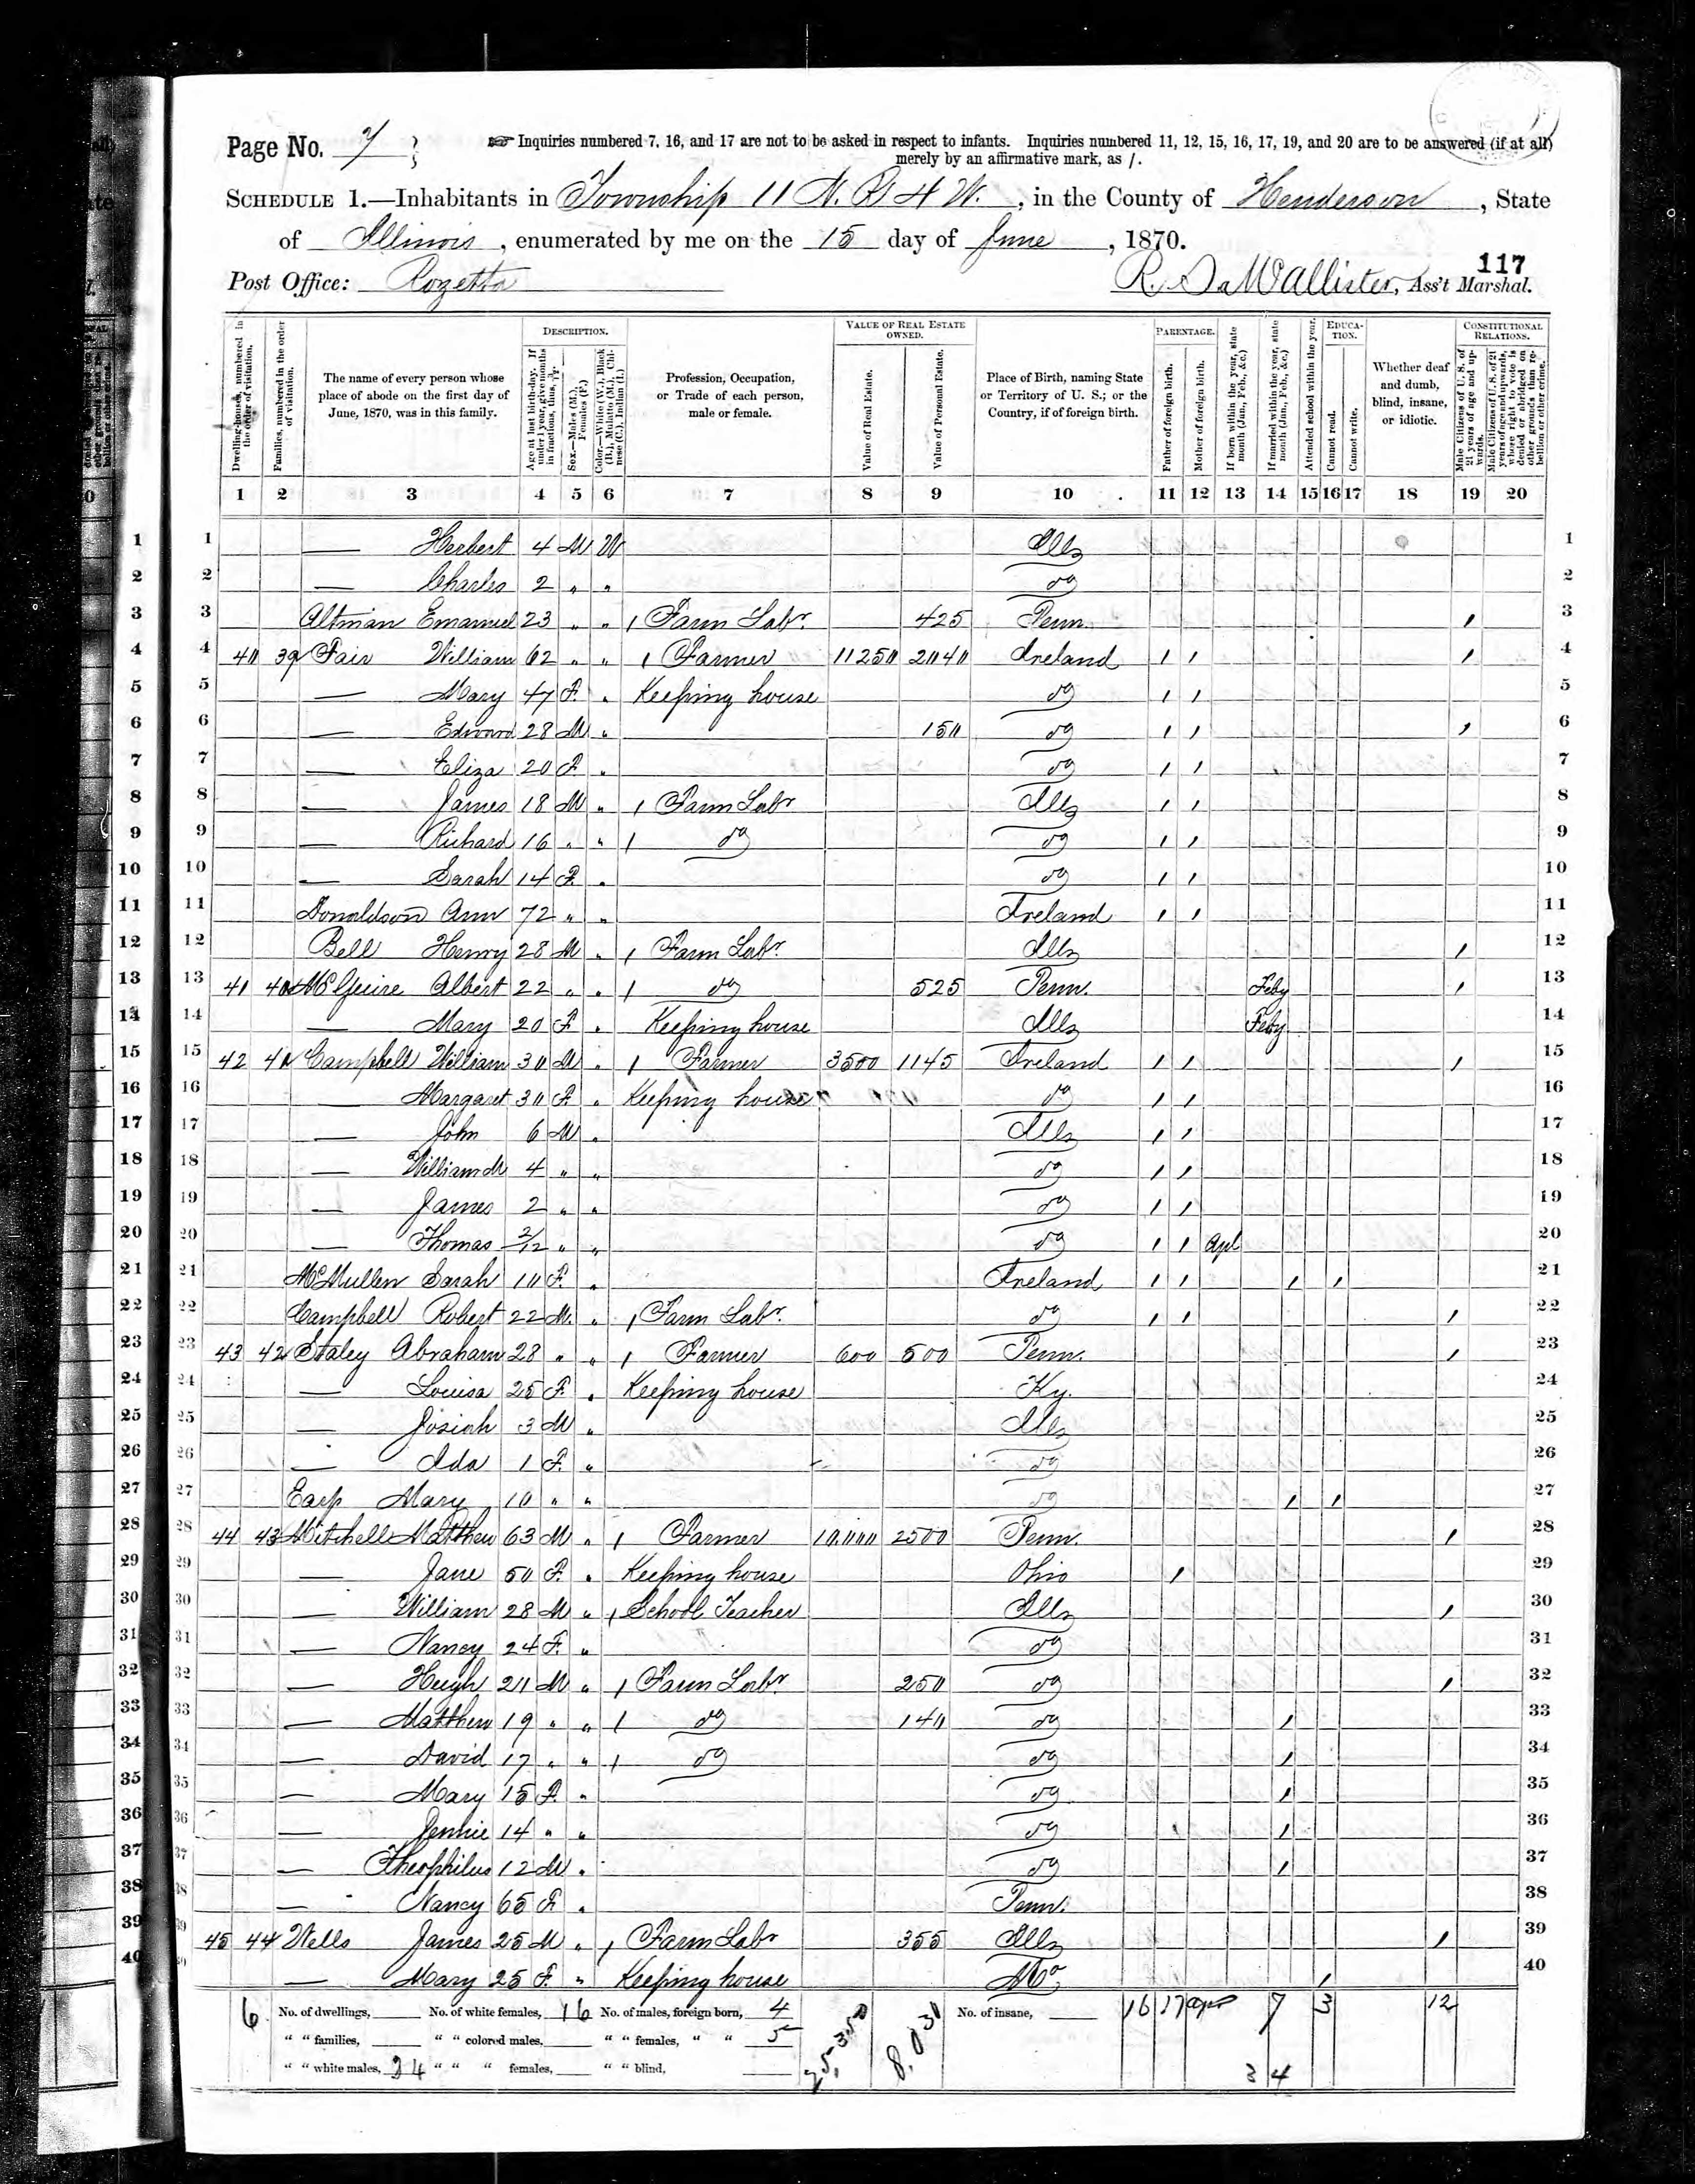 Page No. 7
☞ Inquiries numbered 7, 16, and 17 are not to be asked in respect to infants. Inquiries numbered 11, 12, 15, 16, 17, 19, and 20 are to be answered (if at all)
merely by an affirmative mark, as /.
SCHEDULE 1.—Inhabitants in Township 11 N. R 4 W., in the County of Henderson, State
of Illinois, enumerated by me on the 15 day of June, 1870.
117
Post Office: Rozetta R. McAllister, Ass't Marshal.
DESCRIPTION. VALUE OF REAL ESTATE OWNED. PARENTAGE. EDUCATION. CONSTITUTIONAL RELATIONS.
Dwelling-houses, numbered in the order of visitation.
Families, numbered in the order of visitation.
The name of every person whose place of abode on the first day of June, 1870, was in this family.
Age at last birth-day. If under 1 year, give months in fractions, thus, 3/12.
Sex.—Males (M.), Females (F.)
Color.—White (W.), Black (B.), Mulatto (M.), Chinese (C.), Indian (I.)
Profession, Occupation, or Trade of each person, male or female.
Value of Real Estate.
Value of Personal Estate.
Place of Birth, naming State or Territory of U. S.; or the Country, if of foreign birth.
Father of foreign birth.
Mother of foreign birth.
If born within the year, state month (Jan., Feb., &c.)
If married within the year, state month (Jan., Feb., &c.)
Attended school within the year.
Cannot read.
Cannot write.
Whether deaf and dumb, blind, insane, or idiotic.
Male Citizens of U. S. of 21 years of age and upwards.
Male Citizens of U. S. of 21 years of age and upwards, where right to vote is denied or abridged on other grounds than rebellion or other crime.
1 2 3 4 5 6 7 8 9 10 11 12 13 14 15 16 17 18 19 20
1 — Herbert 4 M W Ills 1
2 — Charles 2 " " do 2
3 Altman Emanuel 23 " " / Farm Labr. 425 Penn. / 3
4 40 39 Fair William 62 " " / Farmer 11250 2040 Ireland / / / 4
5 — Mary 47 F. " Keeping house do / / 5
6 — Edward 28 M " 150 do / / / 6
7 — Eliza 20 F. " do / / 7
8 — James 18 M " / Farm Labr Ills / / 8
9 — Richard 16 " " / do do / / 9
10 — Sarah 14 F. " do / / 10
11 Donaldson Ann 72 " " Ireland / / 11
12 Bell Henry 28 M " / Farm Labr. Ills / 12
13 41 40 McGuire Albert 22 " " / do 525 Penn. Feby / 13
14 — Mary 20 F " Keeping house Ills Feby 14
15 42 41 Campbell William 30 M " / Farmer 3500 1145 Ireland / / / 15
16 — Margaret 30 F. " Keeping house do / / 16
17 — John 6 M " Ills / / 17
18 — William M 4 " " do / / 18
19 — James 2 " " do / / 19
20 — Thomas 2/12 " " do / / Apl 20
21 McMullen Sarah 10 F. " Ireland / / / / 21
22 Campbell Robert 22 M. " / Farm Labr. do / / / 22
23 43 42 Staley Abraham 28 " " / Farmer 600 500 Penn. / 23
24 — Louisa 25 F. " Keeping house Ky. 24
25 — Josiah 3 M " Ills 25
26 — Ida 1 F. " do 26
27 Earp Mary 10 " " do / / 27
28 44 43 Mitchell Matthew 63 M " / Farmer 10,000 2500 Penn. / 28
29 — Jane 50 F. " Keeping house Ohio / 29
30 — William 28 M " / School Teacher Ills / 30
31 — Nancy 24 F. " do 31
32 — Hugh 21 M " / Farm Labr. 250 do / 32
33 — Matthew 19 " " / do 140 do / 33
34 — David 17 " " / do do / 34
35 — Mary 15 F. " do / 35
36 — Jennie 14 " " do / 36
37 — Theophilus 12 M " do / 37
38 — Nancy 65 F. " Penn. 38
39 45 44 Wells James 25 M " / Farm Labr 355 Ills / 39
40 — Mary 25 F. " Keeping house Mo / 40
6 No. of dwellings, No. of white females, 16 No. of males, foreign born, 4 25,350 8,030 No. of insane, 16 17 7 3 12
" " families, " " colored males, " " females, " " 5
" " white males, 24 " " " females, " " blind, 3 4